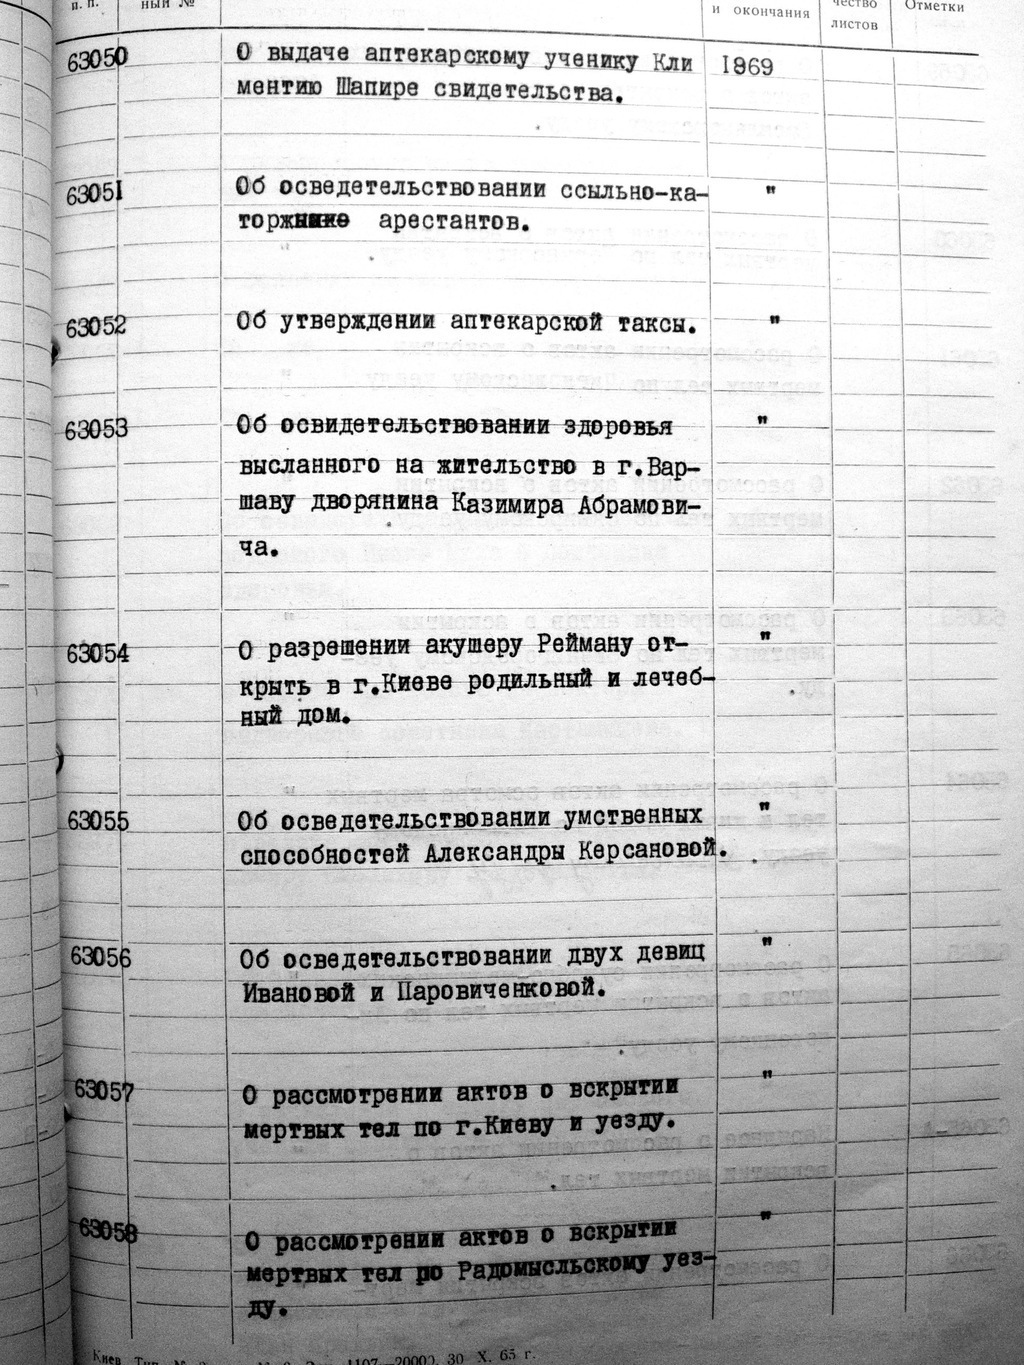 п. п.
ный №
и окончания
чество
листов
Отметки
63050 О выдаче аптекарскому ученику Кли 1869
ментию Шапире свидетельства.
63051 Об осведетельствовании ссыльно-ка- "
торж арестантов.
63052 Об утверждении аптекарской таксы. "
63053 Об освидетельствовании здоровья "
высланного на жительство в г.Вар-
шаву дворянина Казимира Абрамови-
ча.
63054 О разрешении акушеру Рейману от- "
крыть в г.Киеве родильный и лечеб-
ный дом.
63055 Об осведетельствовании умственных "
способностей Александры Керсановой.
63056 Об осведетельствовании двух девиц "
Ивановой и Паровиченковой.
63057 О рассмотрении актов о вскрытии "
мертвых тел по г.Киеву и уезду.
63058 О рассмотрении актов о вскрытии "
мертвых тел по Радомысльскому уез-
ду.
Киев Тип. 1107—20000. 30 X. 65 г.